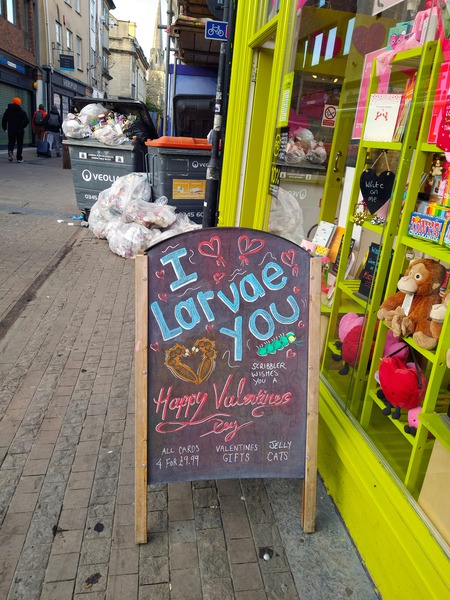 VEOLIA
VEOLIA
Write
on
me
I
Larvae
YOU
SCRIBBLER
WISHES
YOU A
Happy Valentines
Day
ALL CARDS
4 FOR £9.99
VALENTINES
GIFTS
JELLY
CATS